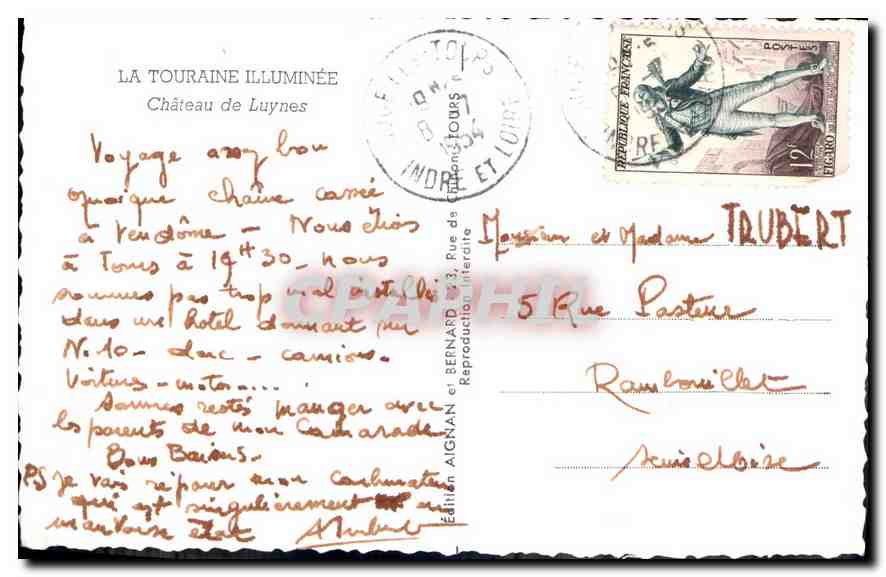 LA TOURAINE ILLUMINÉE
Château de Luynes
Voyage assez bon
quoique chaîne cassée
à Vendôme - Nous étions
à Tours à 19H30 - nous
sommes pas trop mal installés
dans un hôtel donnant sur
N.10 - donc - camions -
Voitures - motos....
Sommes restés manger avec
les parents de mon Camarade
Bons Baisers -
PS Je vais réparer mon carburateur
qui est singulièrement en
mauvaise état ATrubert
Édition AIGNAN et BERNARD 3, Rue de Chinon TOURS
Reproduction Interdite
TOURS
8 - 7
1954
INDRE ET LOIRE
RÉPUBLIQUE FRANÇAISE
POSTES
12F
FIGARO
INDRE
CPAPHIL
Monsieur et Madame TRUBERT
5 Rue Pasteur
Rambouillet
Seine et Oise